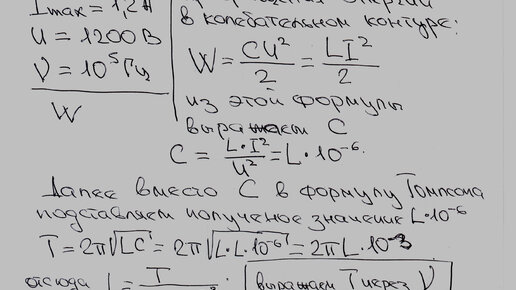 Imax = 1,2 А
U = 1200 В
ν = 10⁵ Гц
W
в колебательном контуре:
W = CU²/2 = LI²/2
из этой формулы
выражаем C
C = L·I²/U² = L·10⁻⁶
Далее вместо C в формулу Томпсона
подставляем полученое значение L·10⁻⁶
T = 2π√LC = 2π√L·L·10⁻⁶ = 2πL·10⁻³
отсюда L = T
выражаем T через ν